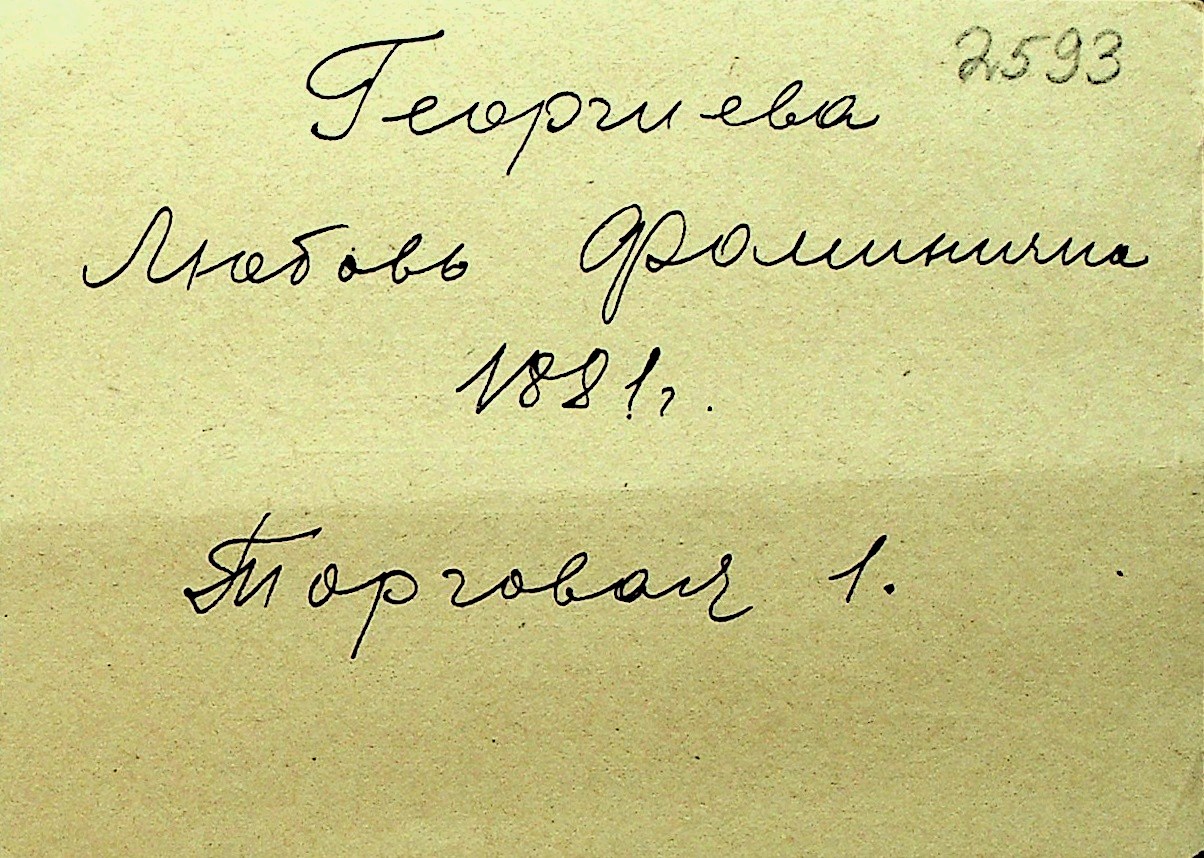 2593
Георгиева
Любовь Фоминична
1881 г.
Торговая 1.